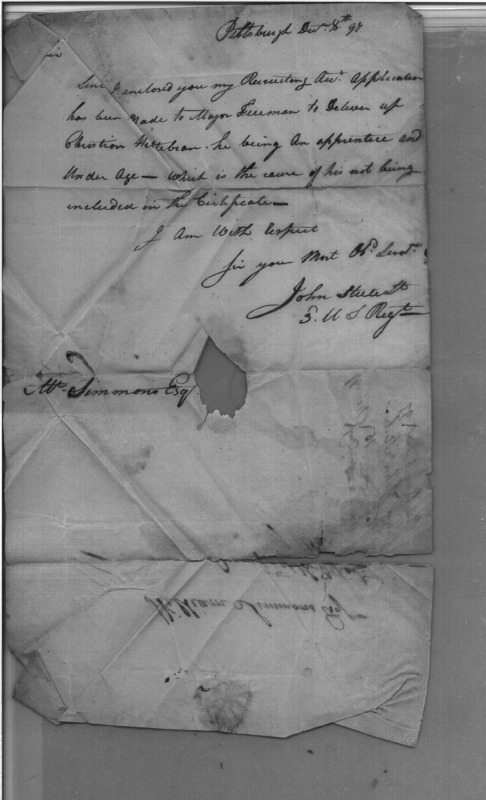 Pittsburgh Decr. 8th 97
Sir
Since I enclosed you my Recruiting Acct. Application
has been made to Major Freeman to Deliver up
Christian he being An apprentice and
Under Age — which is the cause of his not being
included in the Certificate —
I Am With Respect
Sir you Most Obt. Servt.
John Steele Lt
3. U S Regt
Mr. Simmons Esq
William Simmons Esqr